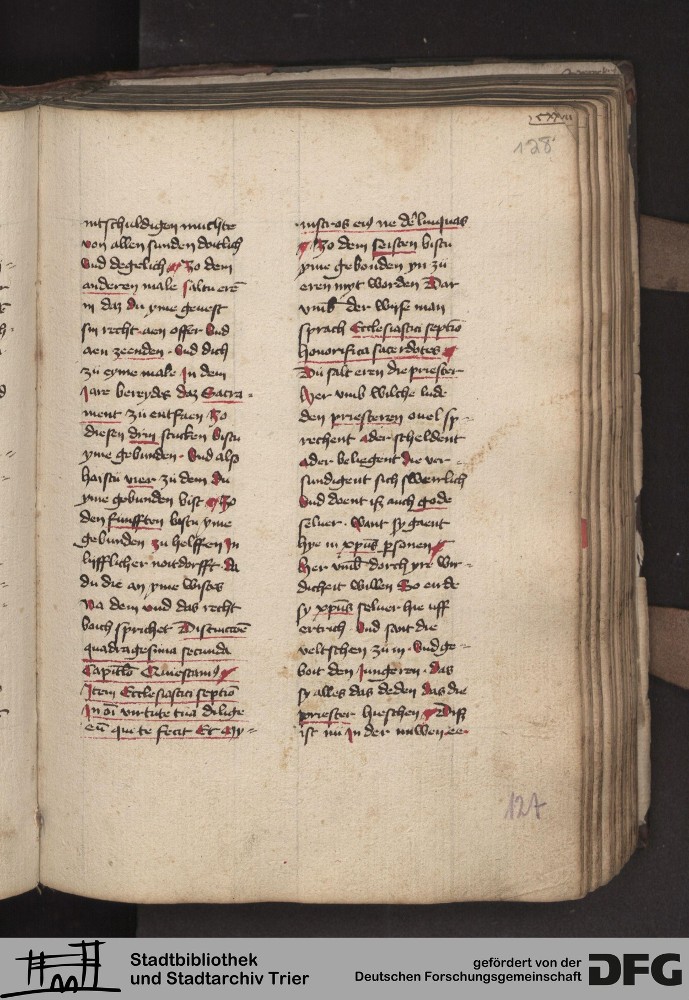 cxxvii
128
intschuldigen muchte
von allen sunden doitlich
vnd degelich Zo dem
anderen male saltu ere
in daz du yme geuest
sin recht aen offer vnd
aen zeenden vnd dich
zu eyme male In dem
Jare bereydes daz Sacra-
ment zu entfaen Zo
diesen drin stucken bistu
yme gebunden vnd also
haistu vier zu dem du
yme gebunden bist Zo
den funfften bistu yme
gebunden zu helffen In
lyfflicher noitdorfft da
du die an yme wistes
Na dem vnd das recht
boich sprichet Distinctoe
quadragesima secunda
Capitlo Quiescam9
Item Ecclesiastici septio
In oi virtute tua dilige
eu qui te fecit Et My-
nistros ei9 ne delinquas
Zo dem seisten bistu
yme gebonden yn zu
eren myt worden Dar
vmb der wyse man
sprach Ecclesiastici septio
honorifica sacerdotes
Du salt eren die priester
her vmb wilche lude
den priesteren ouel sp-
rechent ader scheldent
ader beliegent die ver-
sundigent sich swerlich
vnd doent iz auch gode
seluer want sy gaent
hye in xpus psonen
her vmb dorch yre wir-
dicheit willen So eirde
sy xpus seluer hie uff
ertrich vnd sant die
veltschen zu in vnd ge-
boit den Jungeren das
sy alles das deden das die
priester hieschen Diß
ist nu in der nuwen ee
127
Stadtbibliothek
und Stadtarchiv Trier
gefördert von der
Deutschen Forschungsgemeinschaft
DFG